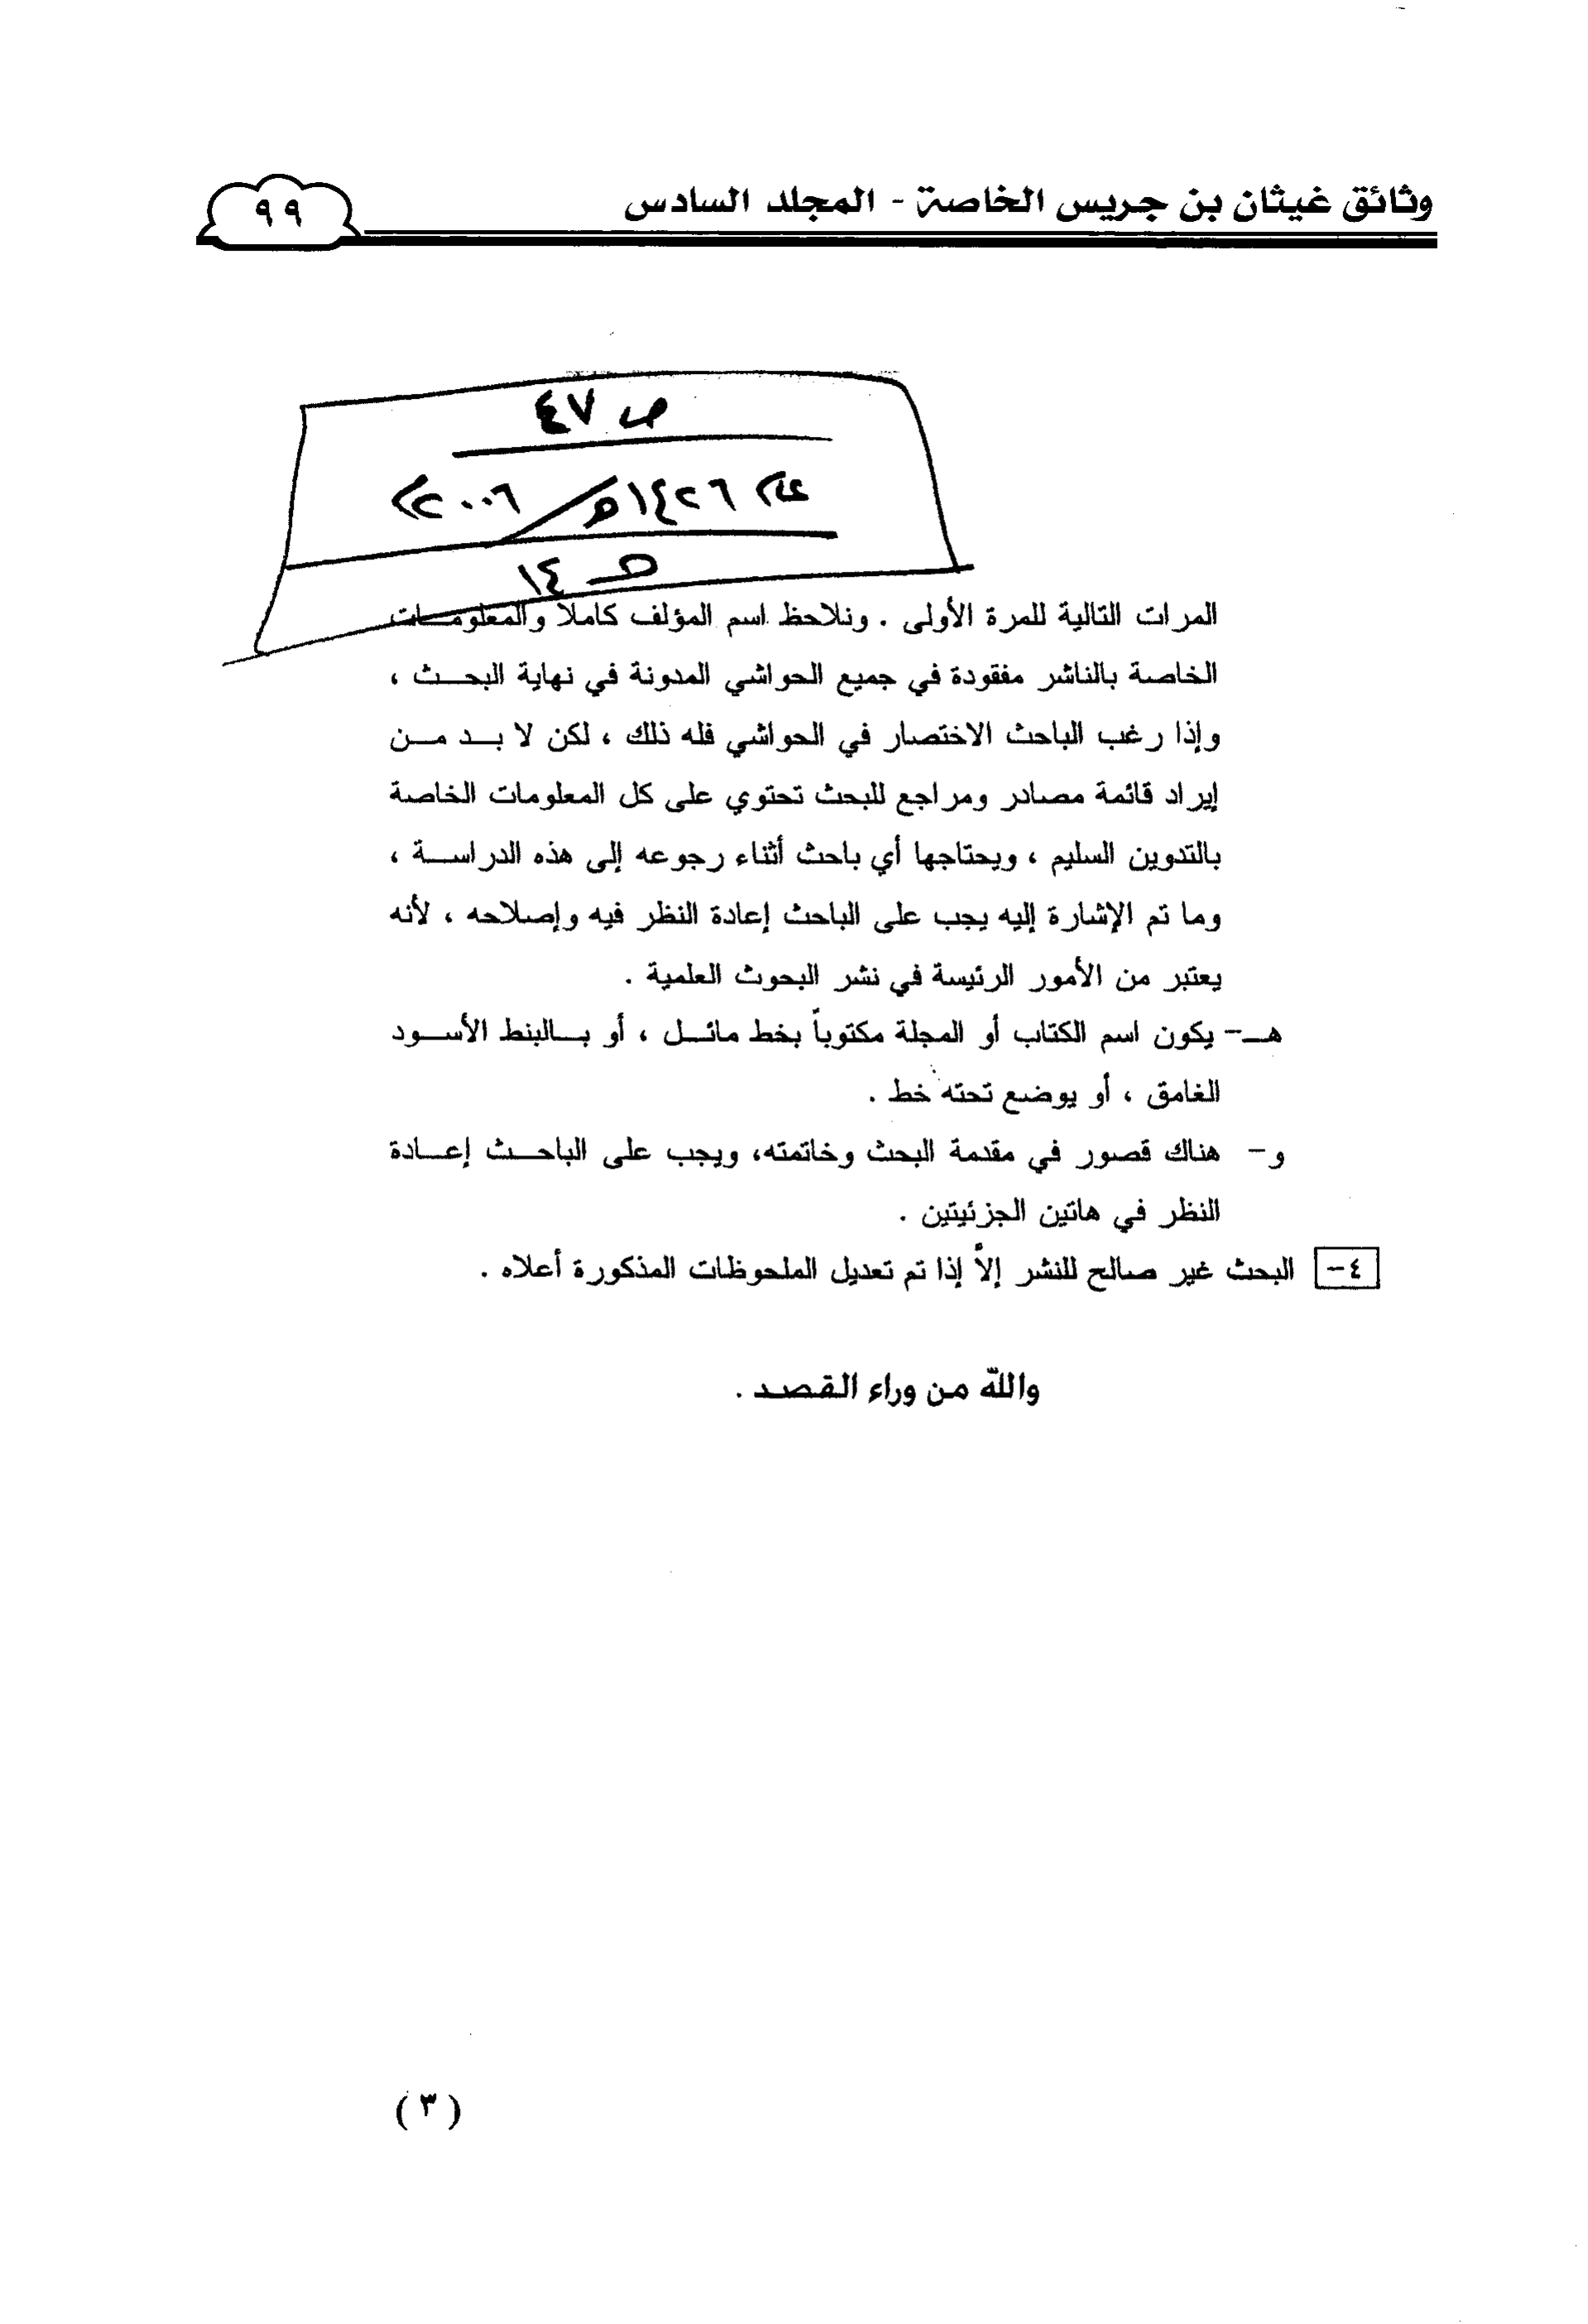 وثائق غيثان بن جريس الخاصة - المجلد السادس
٩٩
ص ٤٧
عام ١٤٢٦هـ / ٢٠٠٦م
هـ ١٤
المرات التالية للمرة الأولى . ونلاحظ اسم المؤلف كاملا والمعلومـات
الخاصة بالناشر مفقودة في جميع الحواشي المدونة في نهاية البحـث ،
وإذا رغب الباحث الاختصار في الحواشي فله ذلك ، لكن لا بـد مـن
إيراد قائمة مصادر ومراجع للبحث تحتوي على كل المعلومات الخاصة
بالتدوين السليم ، ويحتاجها أي باحث أثناء رجوعه إلى هذه الدراسـة ،
وما تم الإشارة إليه يجب على الباحث إعادة النظر فيه وإصلاحه ، لأنه
يعتبر من الأمور الرئيسة في نشر البحوث العلمية .
هـ- يكون اسم الكتاب أو المجلة مكتوباً بخط مائـل ، أو بـالبنط الأسـود
الغامق ، أو يوضع تحته خط .
و- هناك قصور في مقدمة البحث وخاتمته، ويجب على الباحـث إعـادة
النظر في هاتين الجزئيتين .
٤- البحث غير صالح للنشر إلاّ إذا تم تعديل الملحوظات المذكورة أعلاه .
والله من وراء القصد .
(٣)